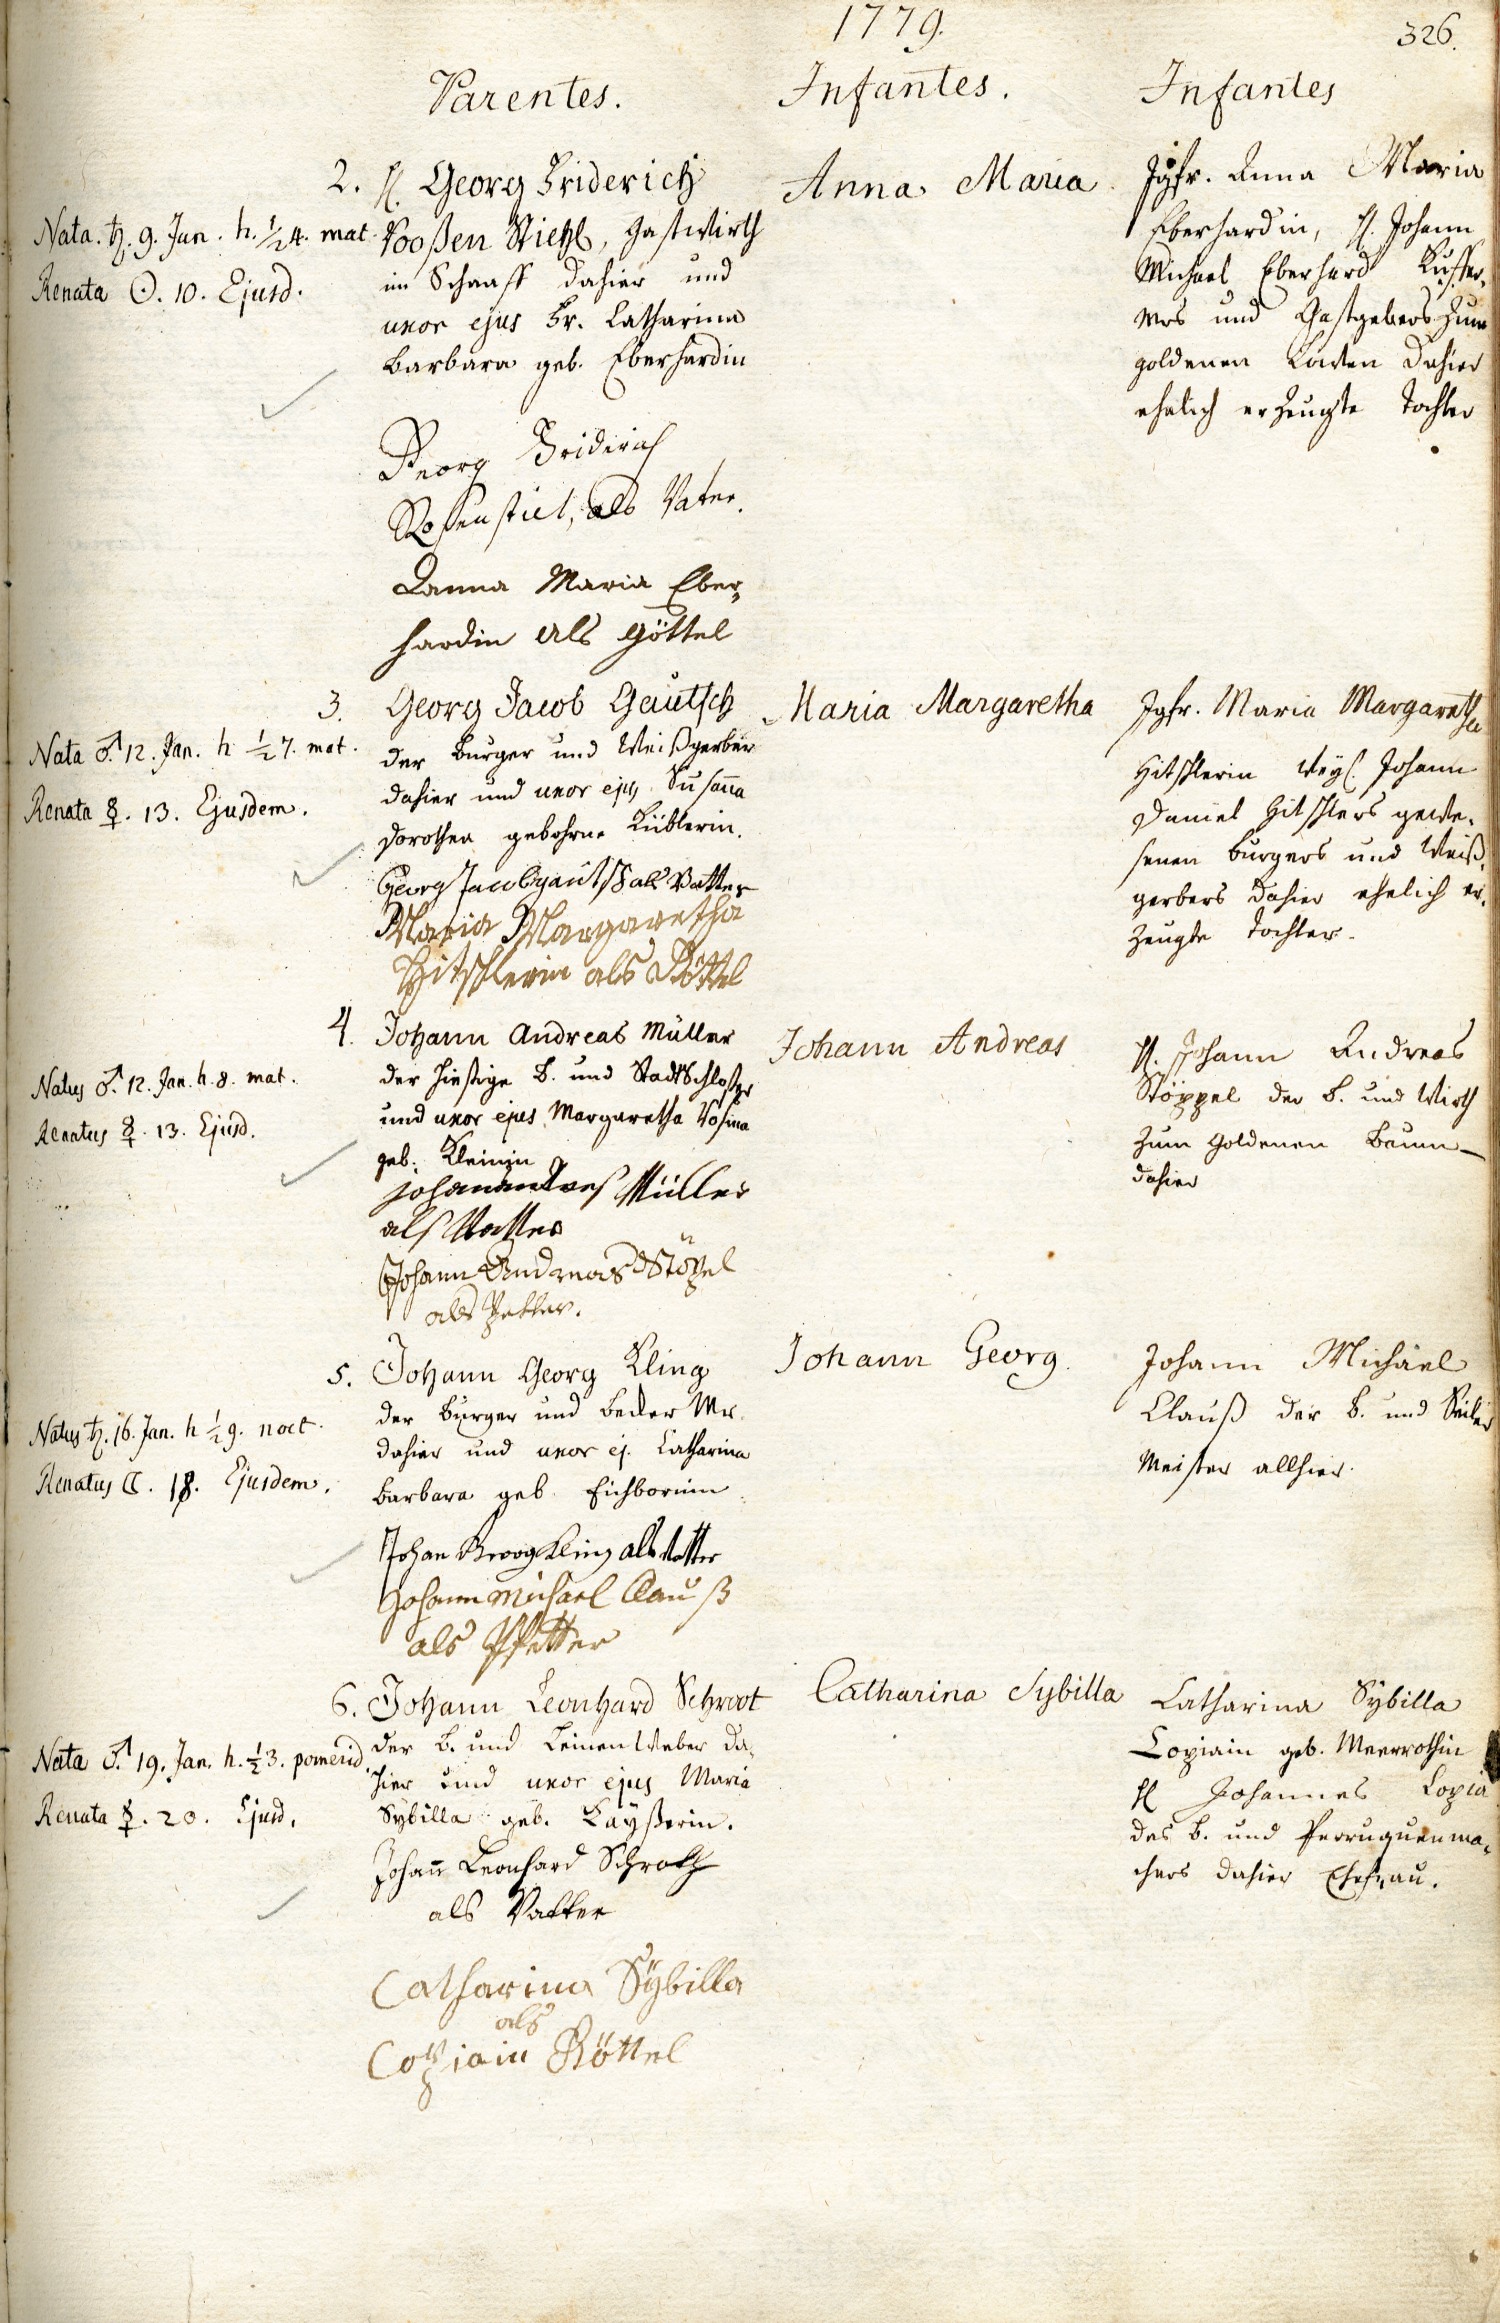 1779.
326.
Parentes.
Infantes.
Infantes
2. H. Georg Friderich
Rooßen Stiehl, Gastwirth
im Schaaff dahier und
uxor ejus Fr. Catharina
Barbara geb. Eberhardin
Nata. ♄. 9. Jan. h. ½ 4. mat.
Renata ☉. 10. Ejusd.
Georg Friderich
Rosenstiel, als Vater.
Anna Maria Eber„
hardin als Göttel
Anna Maria
Jgfr. Anna Maria
Eberhardin, H. Johann
Michael Eberhard Kieffer„
Mrs und Gastgebers zum
goldenen Löwen dahier
ehelich erzeugte Tochter
3. Georg Jacob Gautsch
der Burger und Weißgerber
dahier und uxor ejus Susanna
Dorothea gebohrne Küblerin.
Nata ♂. 12. Jan. h ½ 7. mat.
Renata ☿. 13. Ejusdem.
Georg Jacob gautsch als Vatter
Maria Margaretha
Hitschlerin als Göttel
Maria Margaretha
Jgfr. Maria Margaretha
Hitschlerin weyl. Johann
Daniel Hitschlers gewe„
senen Burgers und Weiß„
gerbers dahier ehelich er„
zeugte Tochter.
4. Johann Andreas Müller
der hießige B. und StadtSchloßer
und uxor ejus Margaretha
geb. Kleinin
Natus ♂. 12. Jan. h. 8. mat.
Renatus ☿. 13. Ejusd.
Johann Andres Müller
als Vatter
Johann Andreas Stöppel
als Petter.
Johann Andreas
H. Johann Andreas
Stöppel der B. und Wirth
zum goldenen Baum
dahier
5. Johann Georg Kling
der Burger und Becker Mr.
dahier und uxor ej. Catharina
Barbara geb. Eichbornin
Natus ♄. 16. Jan. h ½ 9. noct.
Renatus ☾. 18. Ejusdem.
Johan Georg Kling als Vatter
Johann Michael Clauß
als Pfetter
Johann Georg.
Johann Michael
Clauß der B. und Seiler
Meister allhier.
6. Johann Leonhard Schroot
der B. und Leinenweber da„
hier und uxor ejus Maria
Sybilla geb. Layßerin.
Nata ♂. 19. Jan. h. ½ 3. pomerid.
Renata ☿. 20. Ejusd.
Johann Leonhard Schroth
als Vatter
Catharina Sybilla
als
Copiain Göttel
Catharina Sybilla
Catharina Sybilla
Copiain geb. Meerrothin
H Johannes Copia
des B. und Perruquenma„
chers dahier Ehefrau.